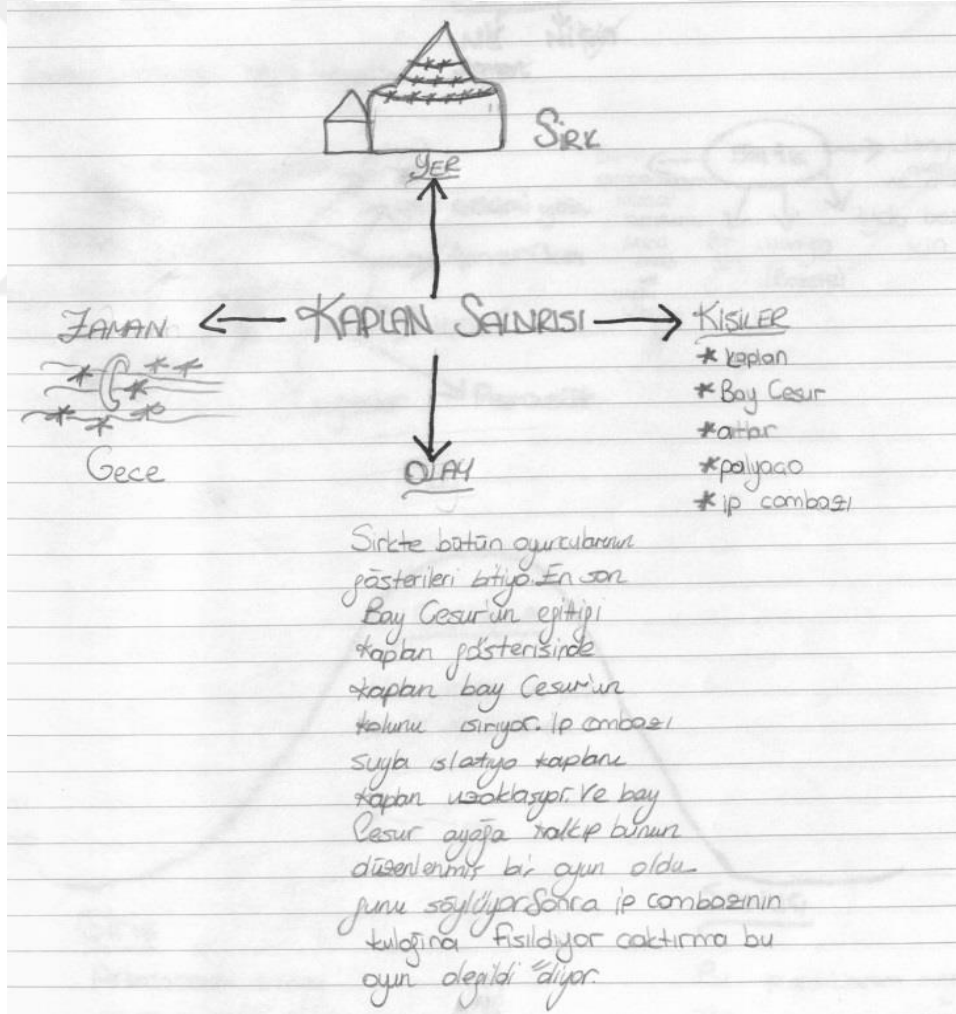 SİRK
YER
ZAMAN
KAPLAN SALDIRISI
KİŞİLER
* kaplan
* Bay Cesur
* atlar
* palyaço
* ip cambazı
Gece
OLAY
Sirkte bütün oyuncularının
gösterileri bitiyo. En son
Bay Cesur'un eğittiği
kaplan gösterisinde
kaplan bay Cesur'un
kolunu ısırıyor. İp cambazı
suyla ıslatıyo kaplanı
kaplan uzaklaşıyor. Ve bay
Cesur ayağa kalkıp bunun
düzenlenmiş bir oyun oldu
ğunu söylüyor. Sonra ip cambazının
kulağına fısıldıyor çaktırma bu
oyun değildi "diyor.